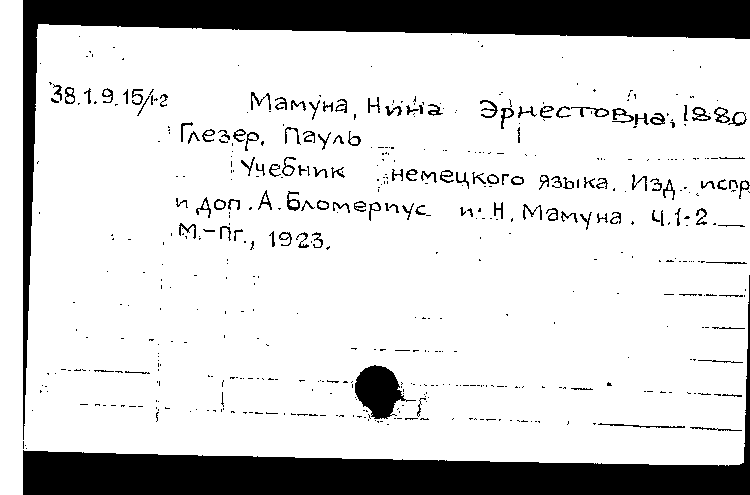 38.1.9.15/1-2 Мамуна, Нина Эрнестовна, 1880
Глезер, Пауль
Учебник немецкого языка. Изд. испр
и доп. А. Бломериус и Н. Мамуна. Ч.1-2.
М.-Пг., 1923.